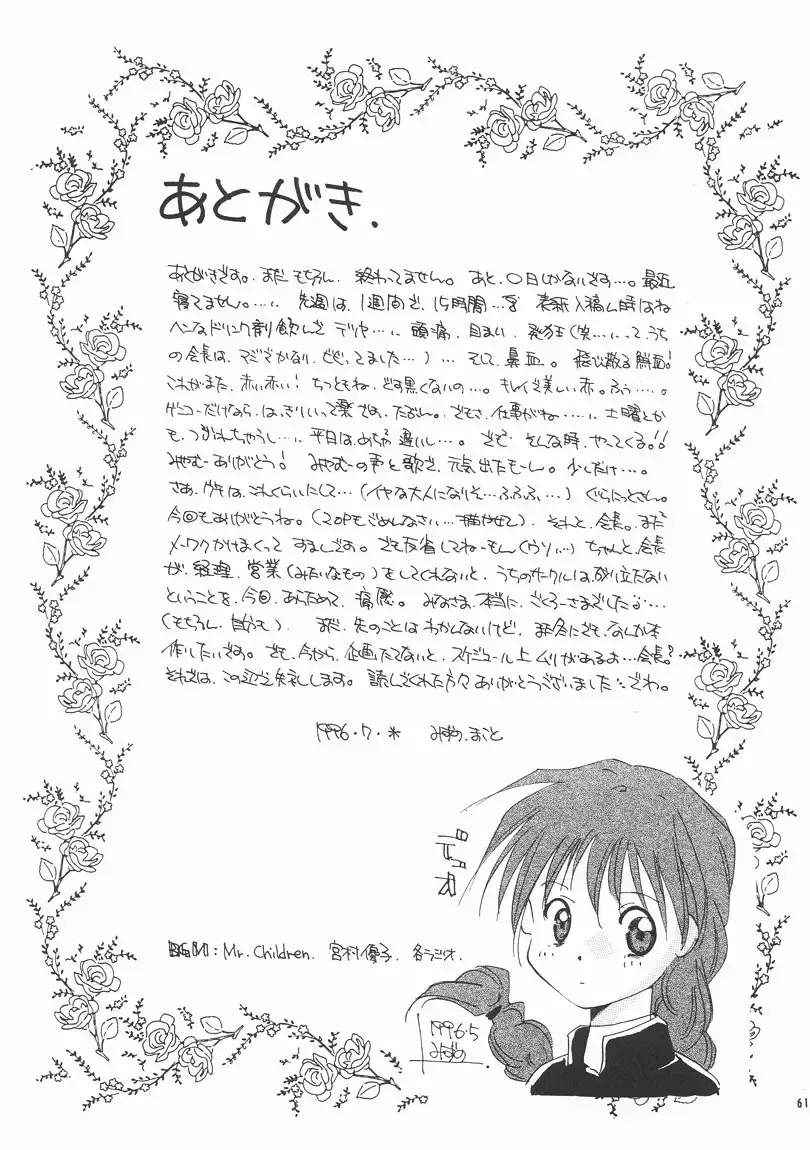 あとがき.
あとがきです。まだもちろん、終わってません。あと、〇日しかないです…。最近
寝てません。…、先週は、1週間で、15時間…。表紙入稿ん時はね
ヘンなドリンク剤飲んで デリヤ…、頭痛、目まい、発狂(笑…、って、うち
の会長は、マジでさかない、とどいてました…)… そして、鼻血。飛び散る鮮血!
これがまた、赤い赤い! ちっともね、どす黒くないの…。キレイで美しい赤。ふぅ…。
ゲンコーだけなら、はっきりいって楽です、たぶん。でもさ、仕事がね……、土曜とか
も、つぶれちゃうし…、平日は、めちゃ遅いし…。さて、そんな時、やってくる!!
みやむーありがとう! みやむーの声と歌で、元気出たもーん。少しだけ…。
さあ、グチは、これくらいにして…(イヤな大人になりそ…ふふふ…)ぐらにっとさん。
今回もありがとうね。(20Pもごめんなさい…描かせて)、それと、会長。まだ
メーワクかけまくって すまんです。でも反省してねーもん(ウソ…)ちゃんと会長
が、経理、営業(みたいなもの)をしてくれないと、うちのサークルは、成り立たない
ということを、今回、あらためて、痛感。みなさま、本当に、ごくろーさまでした…
(もちろん、自分も)、まだ、先のことはわかんないけど、また冬にでも、なんか本
作りたいです。でも、今から、企画たてないと、スケジュール上ムリがあるよ…会長?
それでは、この辺で失礼します。読んでくれた方々ありがとうございました。でわ。
1996.7.* みずの.まこと
BGM:Mr.Children. 宮村優子. 各ラジオ.
1996.5
みずの
61